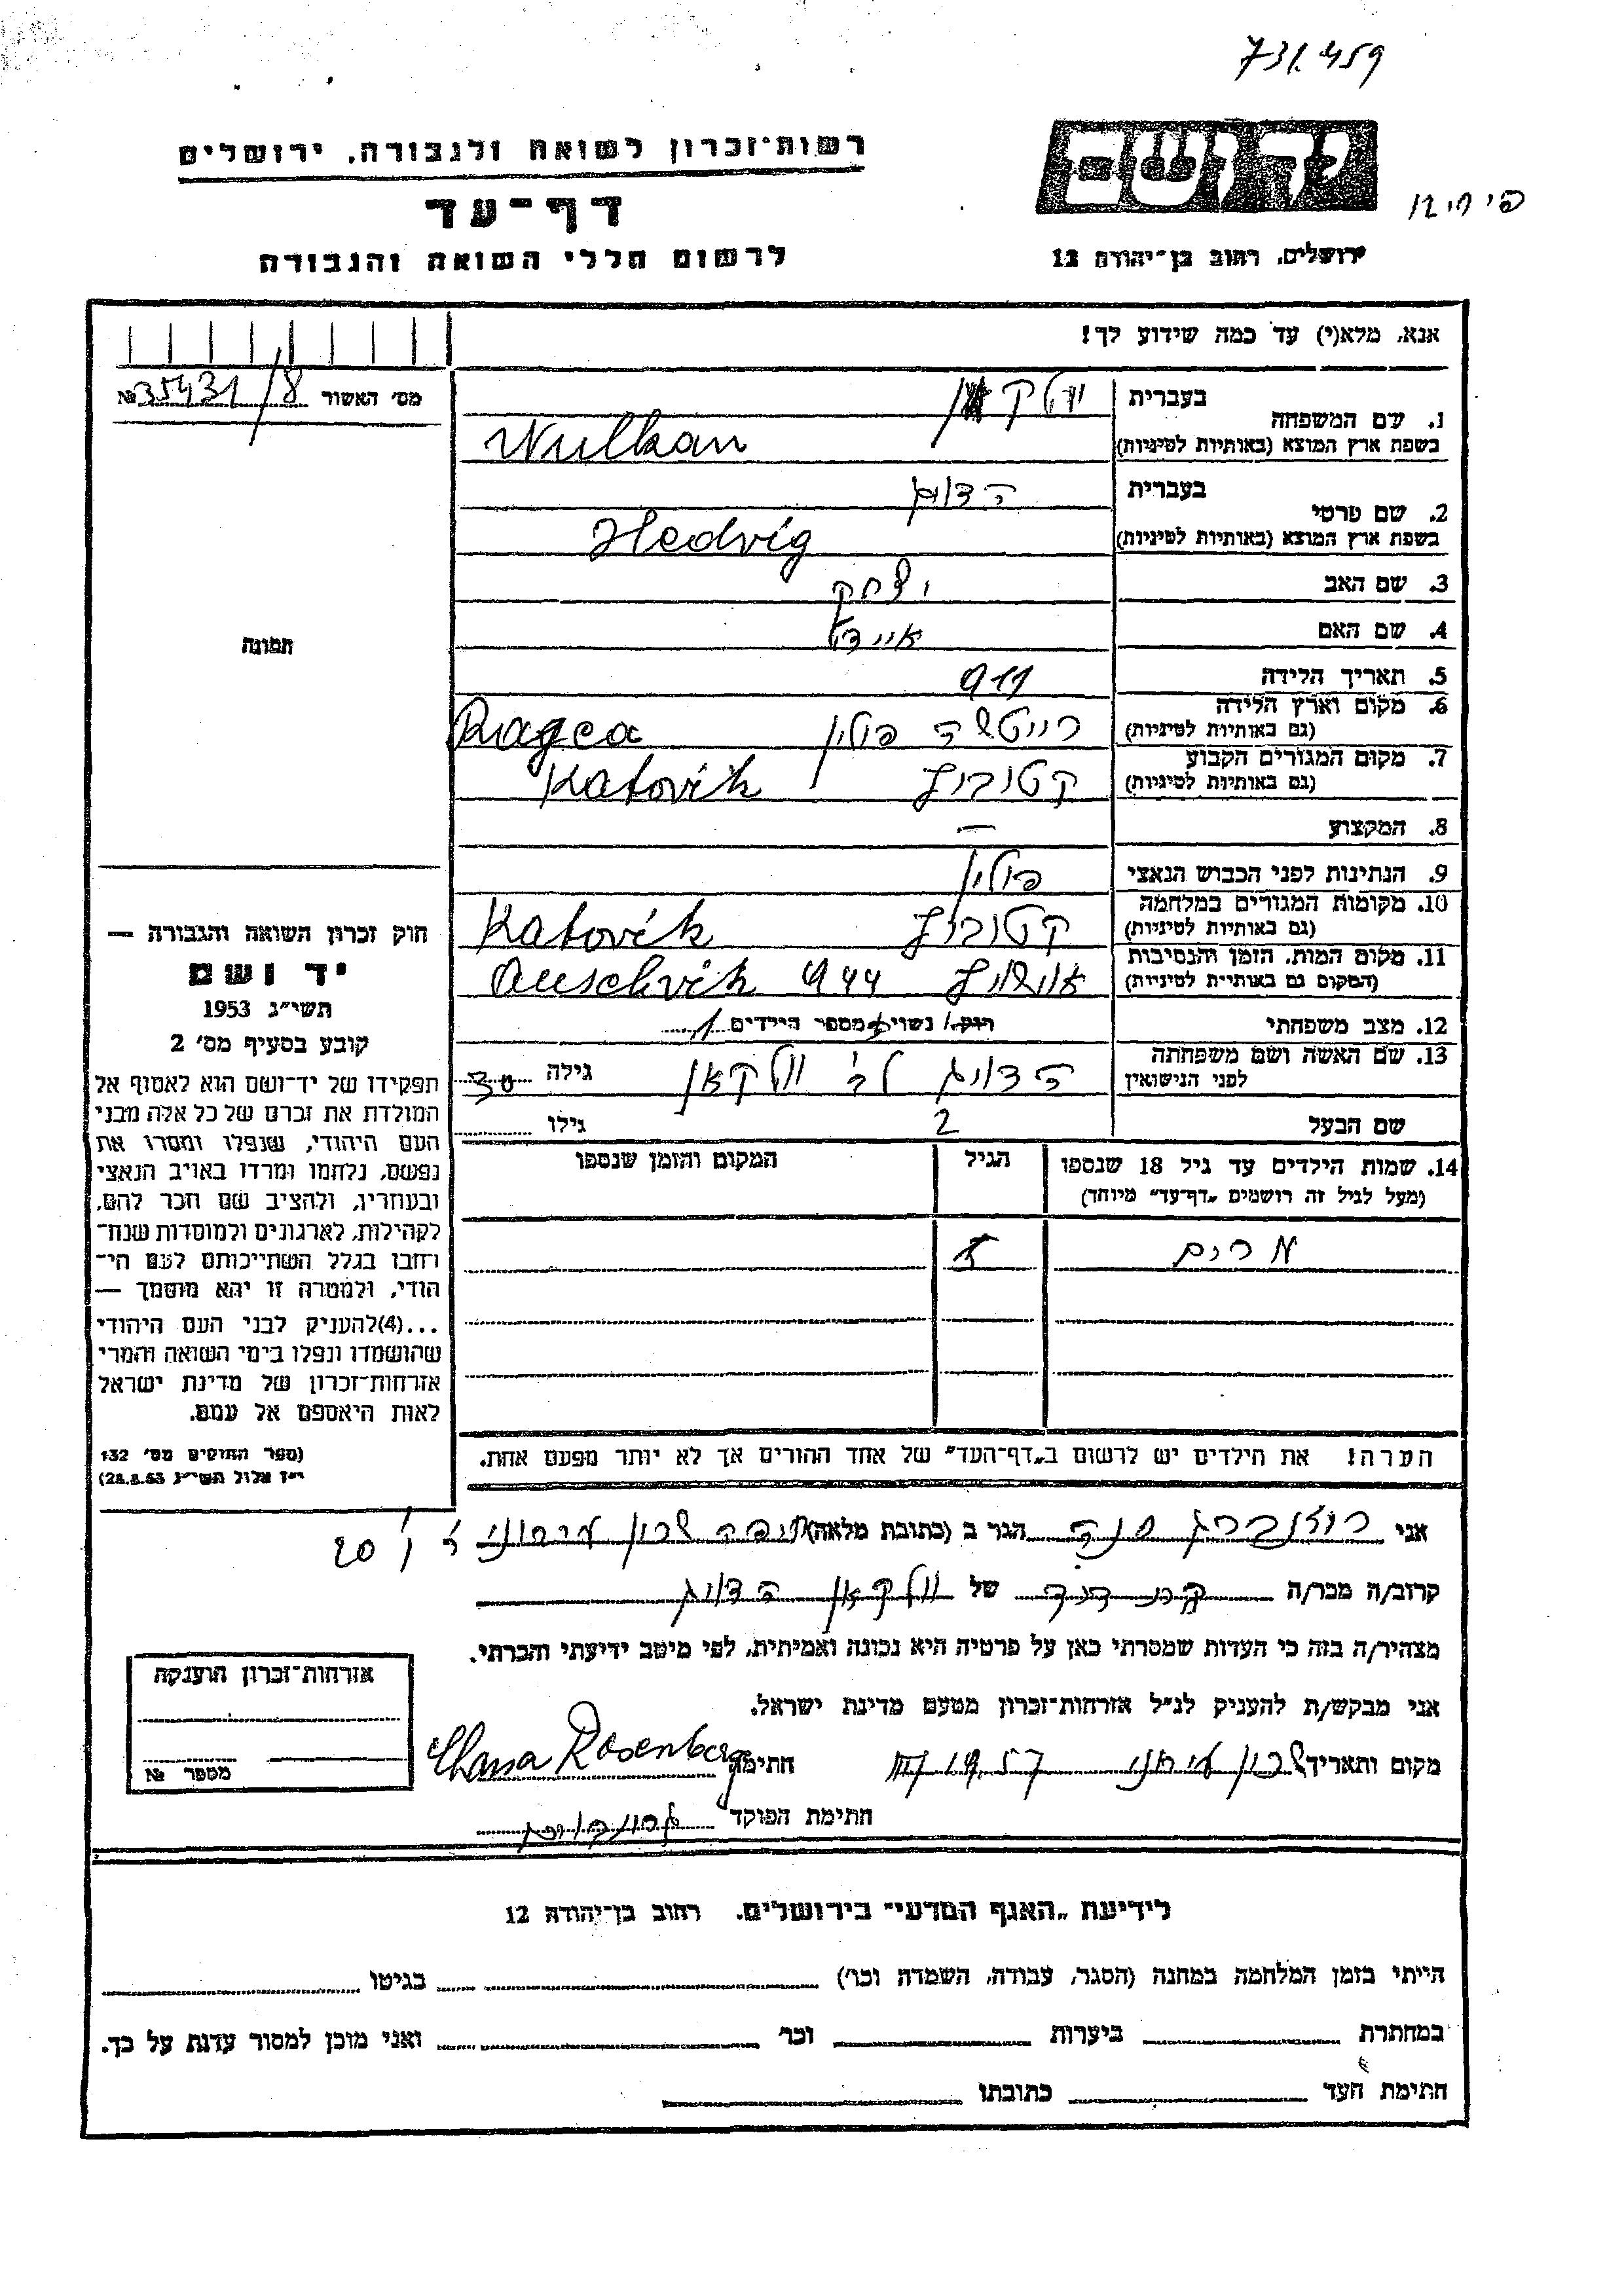 731.459
רשות־זכרון לשואה ולגבורה, ירושלים
ידושם
דף־עד
לרשום חללי השואה והגבורה
ירושלים, רחוב בן־יהודה 12
אנא, מלא(י) עד כמה שידוע לך!
מס׳ האשור № 35431/8
1. שם המשפחה
בעברית
בשפת ארץ המוצא (באותיות לטיניות) Wulkan
2. שם פרטי
בעברית הדוויג
בשפת ארץ המוצא (באותיות לטיניות) Hedvig
3. שם האב יצחק
4. שם האם איידל
5. תאריך הלידה 911
6. מקום וארץ הלידה
(גם באותיות לטיניות) פולין
7. מקום המגורים הקבוע
(גם באותיות לטיניות) קטוביץ Katovik
8. המקצוע —
9. הנתינות לפני הכבוש הנאצי פולין
10. מקומות המגורים במלחמה
(גם באותיות לטיניות) קטוביץ Katovik
11. מקום המות, הזמן והנסיבות
(המקום גם באותיות לטיניות) אושוויץ 944 Auschvik
12. מצב משפחתי רווק/ נשוי מספר הילדים 1
13. שם האשה ושם משפחתה
לפני הנישואין הדוויג לב׳ וולקאן גילה 30
שם הבעל 2 גילו
14. שמות הילדים עד גיל 18 שנספו
(מעל לגיל זה רושמים „דף־עד״ מיוחד)
הגיל
המקום והזמן שנספו
מרים 7
הערה! את הילדים יש לרשום ב„דף־העד״ של אחד ההורים אך לא יותר מפעם אחת.
תמונה
חוק זכרון השואה והגבורה —
יד ושם
תשי״ג 1953
קובע בסעיף מס׳ 2
תפקידו של יד־ושם הוא לאסוף אל
המולדת את זכרם של כל אלה מבני
העם היהודי, שנפלו ומסרו את
נפשם, נלחמו ומרדו באויב הנאצי
ובעוזריו, ולהציב שם וזכר להם,
לקהילות, לארגונים ולמוסדות שנח־
רחבו בגלל השתייכותם לעם הי־
הודי, ולמטרה זו יהא מוסמך —
...(4) להעניק לבני העם היהודי
שהושמדו ונפלו בימי השואה והמרי
אזרחות־זכרון של מדינת ישראל
לאות היאספם אל עמם.
(ספר החוקים מס׳ 132
י״ז אלול תשי״ג 28.8.53)
אני רוזנברג חנה הגר ב (כתובת מלאה) שכון עירוני 20
קרוב/ה מכר/ה של וולקאן הדוויג
מצהיר/ה בזה כי העדות שמסרתי כאן על פרטיה היא נכונה ואמיתית, לפי מיטב ידיעתי והכרתי.
אני מבקש/ת להעניק לנ״ל אזרחות־זכרון מטעם מדינת ישראל.
מקום ותאריך שכון עירוני 19.57 חתימה Chana Rosenberg
חתימת הפוקד
אזרחות־זכרון הוענקה
מספר №
לידיעת „האגף המדעי״ בירושלים, רחוב בן־יהודה 12
הייתי בזמן המלחמה במחנה (הסגר, עבודה, השמדה וכו׳) בגיטו
במחתרת ביערות וכו׳ ואני מוכן למסור עדות על כך.
חתימת העד כתובתו